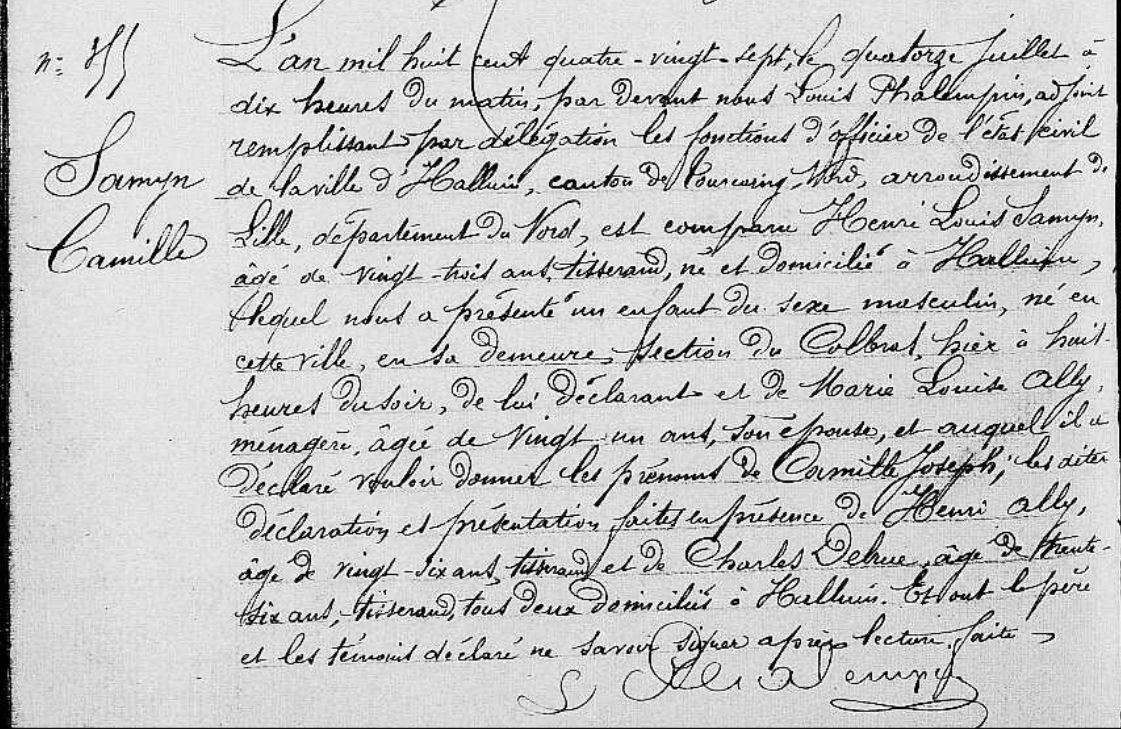 n°
Samyn
Camille
L'an mil huit cent quatre-vingt-sept, le quatorze juillet à
dix heures du matin, par devant nous Louis Phalempin, adjoint
remplissant par délégation les fonctions d'officier de l'état civil
de la ville d'Halluin, canton de Tourcoing-Nord, arrondissement de
Lille, département du Nord, est comparu Henri Louis Samyn,
âgé de vingt-trois ans, tisserand, né et domicilié à Halluin,
lequel nous a présenté un enfant du sexe masculin, né en
cette ville, en sa demeure, section du Colbras, hier à huit
heures du soir, de lui déclarant et de Marie Louise Ally,
ménagère, âgée de vingt un ans, son épouse, et auquel il a
déclaré vouloir donner les prénoms de Camille Joseph; les dites
déclaration et présentation faites en présence de Henri Ally,
âgé de vingt-six ans, tisserand et de Charles Delrue, âgé de trente-
six ans, tisserand, tous deux domiciliés à Halluin. Et ont le père
et les témoins déclaré ne savoir signer après lecture faite
L Phalempin